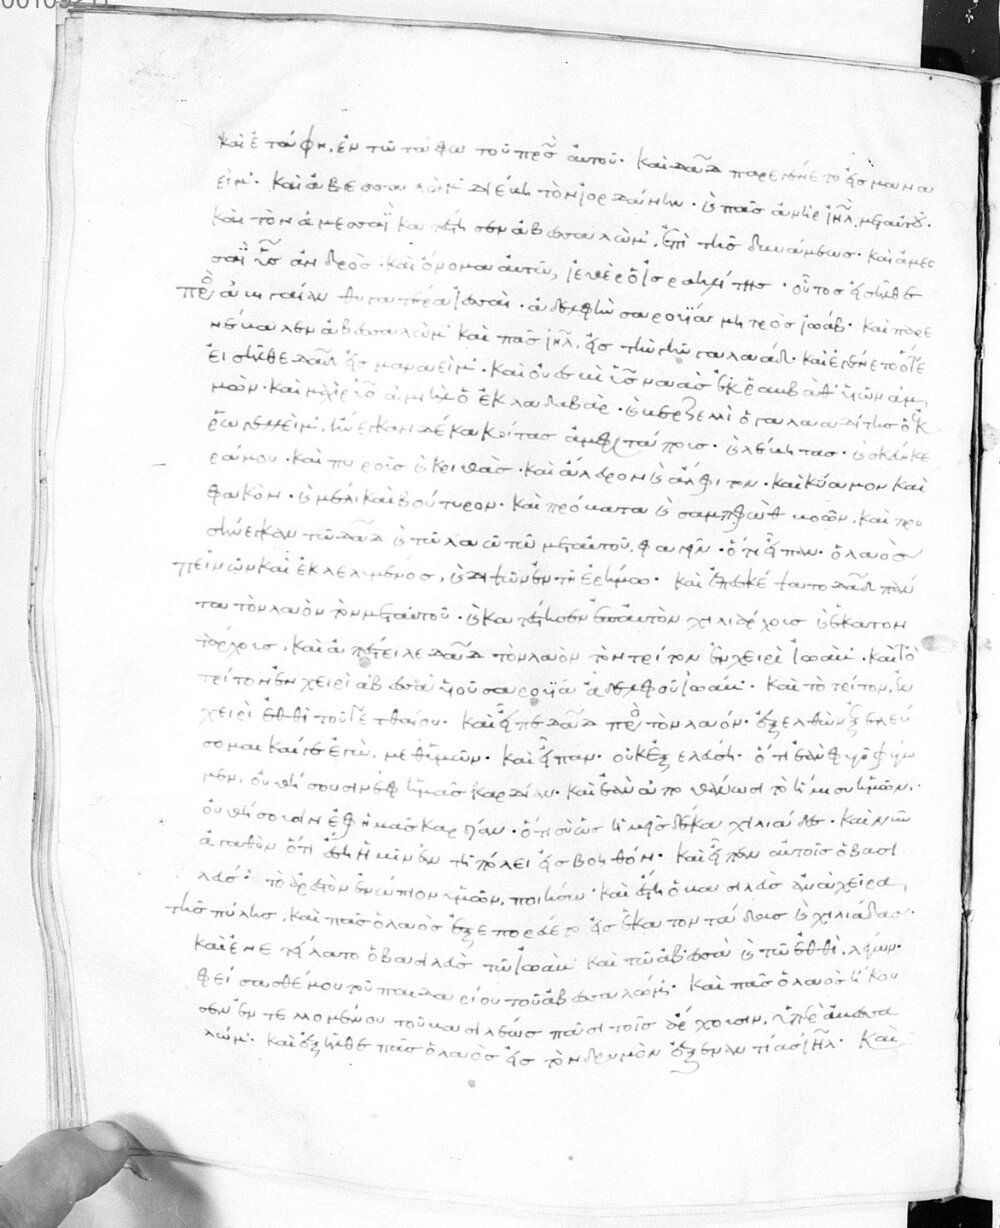 καὶ ἐτάφη, ἐν τῶ τάφω τοῦ πρσ αὐτοῦ· καὶ δαδ παρεγένετο εἰς μανα
είμ· καὶ ἀβεσσαλὼμ διέβη τὸν ἰορδάνην· καὶ πᾶσ ἀνὴρ ιηλ μεταὐτοῦ·
καὶ τὸν ἀμεσαῒ κατέστησεν ἀβεσσαλὼμ, ἐπὶ τῆσ δυνάμεωσ· καὶ ἀμεσ
σαῒ υσ ἀνδρὸσ· καὶ ὄνομα αὐτῶ, ἰεθὲρ ὁ ἰσραηλίτησ· οὗτοσ εἰσῆλθε
πρὸ ἀβιγαίαν θυγατέρα ἰεσσαὶ· ἀδελφὴν σαρουΐασ μητρὸσ ἰωάβ· καὶ παρε
νέβαλεν ἀβεσσαλὼμ καὶ πᾶσ ιηλ, εἰσ τὴν γῆν γαλαάδ· καὶ ἐγένετο ὅτε
εἰσῆλθε δαδ εἰσ μαναείμ· καὶ
μών· καὶ μαχὶρ υσ ἀμιὴλ ὁ ἐκ λαδαβὰρ· καὶ βερζελλὶ ὁ γαλααδίτησ ὁ ἐκ
ῥωγελλεὶμ, ἤνεγκαν δέκα κοίτασ ἀμφιτάποισ· καὶ λέβητασ· καὶ σκεύη κε
ράμου· καὶ πυροὺσ καὶ κριθὰσ· καὶ ἄλευρον καὶ ἄλφιτον· καὶ κύαμον καὶ
φακὸν· καὶ μέλι καὶ βούτυρον· καὶ πρόβατα καὶ σαμφὼθ βοῶν, καὶ προ
σήνεγκαν τῶ δαδ καὶ τῶ λαῶ τῶ μεταὐτοῦ, φαγεῖν· ὅτι εἶπαν· ὁ λαὸσ
πεινῶν καὶ ἐκλελυμένοσ, καὶ διψῶν ἐν τῆ ἐρήμω· καὶ ἐπεσκέψατο δαδ πάν
τα τὸν λαὸν τὸν μεταὐτοῦ· καὶ κατέστησεν ἐπαὐτὸν χιλιάρχουσ καὶ ἑκατον
τάρχουσ, καὶ ἀπέστειλε δαδ τὸν λαὸν τὸ τρίτον ἐν χειρὶ ἰωάβ· καὶ τὸ
τρίτον ἐν χειρὶ ἀβεσσὰ υἱοῦ σαρουΐα ἀδελφοῦ ἰωάβ· καὶ τὸ τρίτον, ἐν
χειρὶ ἐθθὶ τοῦ γετθαίου· καὶ εἶπε δαδ πρὸσ τὸν λαόν· ἐξελθὼν ἐξελεύ
σομαι καί γε ἐγὼ, μεθ᾽ ὑμῶν· καὶ εἶπαν· οὐκ ἐξελεύση· ὅτι ἐὰν φυγῆ φύγω
μεν, οὐ θήσουσιν ἐφ᾽ ἡμᾶσ καρδίαν· καὶ ἐὰν ἀποθάνωσι τὸ ἥμισυ ἡμῶν,
οὐ θήσουσιν ἐφ᾽ ἡμᾶσ καρδίαν· ὅτι σὺ ὡσ ἡμεῖσ δέκα χιλιάδεσ· καὶ νῦν
ἀγαθὸν ὅτι ἔση ἡμῖν ἐν τῆ πόλει εἰσ βοηθόν· καὶ εἶπεν αὐτοῖσ ὁ βασι
λεύσ· τὸ ἀρεστὸν ἐνώπιον ὑμῶν, ποιήσω· καὶ ἔστη ὁ βασιλεὺσ ἀνὰ χεῖρα
τῆσ πύλησ, καὶ πᾶσ ὁ λαὸσ ἐξεπορεύετο εἰσ ἑκατοντάδασ καὶ χιλιάδασ·
καὶ ἐνετείλατο ὁ βασιλεὺσ τῶ ἰωὰβ καὶ τῶ ἀβεσσὰ καὶ τῶ ἐθθὶ, λέγων·
φείσασθέ μου τοῦ παιδαρίου τοῦ ἀβεσσαλώμ· καὶ πᾶσ ὁ λαὸσ ἤκου
σεν ἐντελλομένου τοῦ βασιλέωσ πᾶσι τοῖσ ἄρχουσιν, ὑπὲρ ἀβεσσα
λώμ· καὶ ἐξῆλθε πᾶσ ὁ λαὸσ εἰσ τὸν δρυμὸν ἐξεναντίασ ιηλ· Καὶ